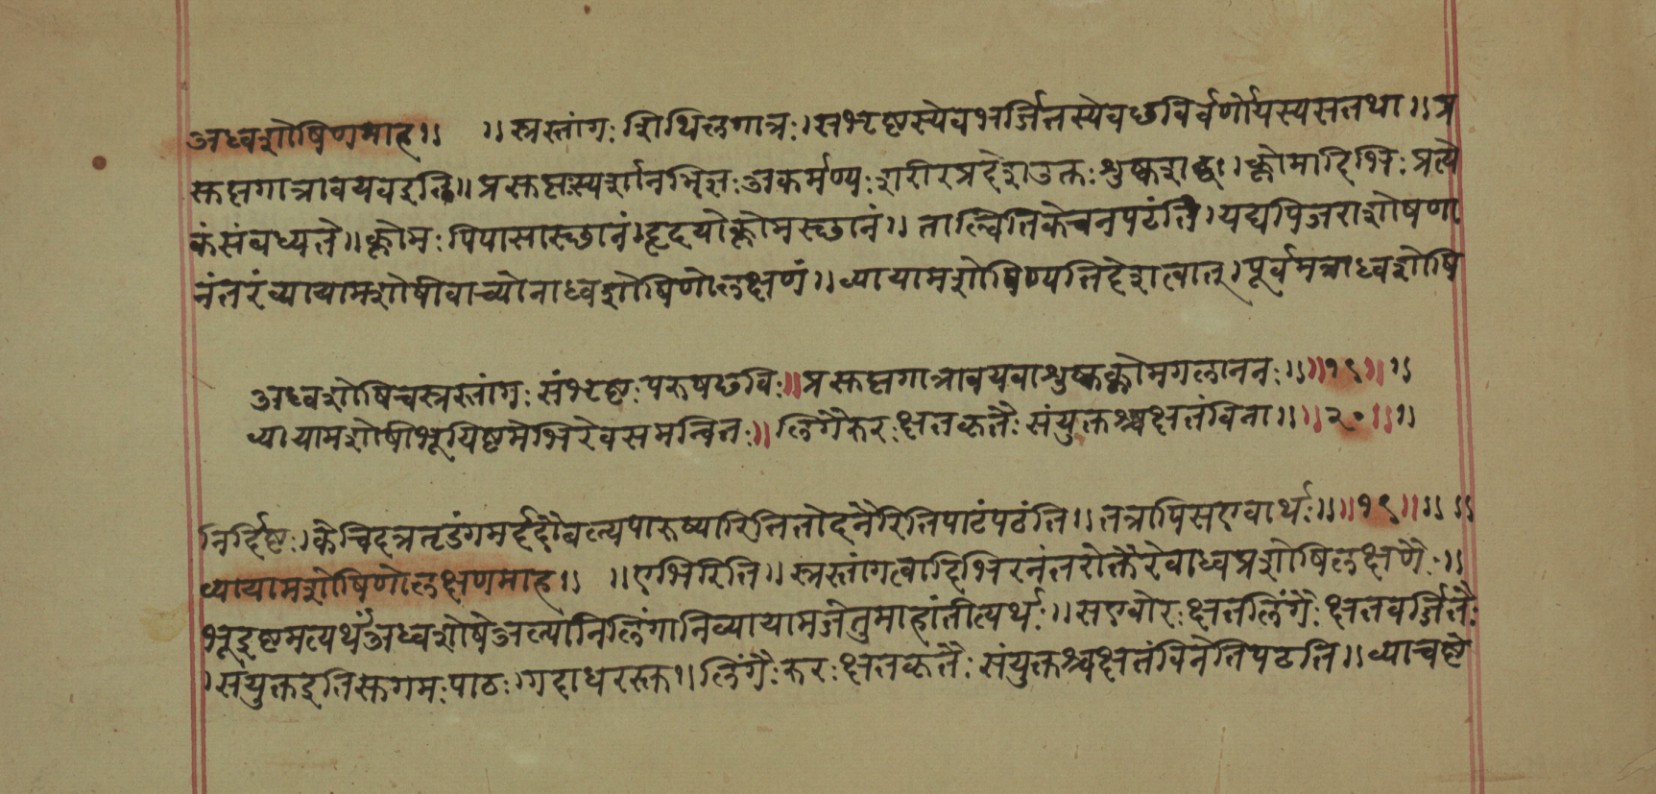 अध्वशोषिणमाह॥ ॥स्रस्तांगः शिथिलगात्रः।सभृष्टस्येवभर्जितस्येवछविर्वर्णोयस्यसतथा॥प्र
सुप्तगात्रावयवइति॥प्रसुप्तस्पर्शानभिज्ञःअकर्मण्यःशरीरप्रदेशउक्तःशुष्कशब्दः।क्लोमादिभिःप्रत्ये
कंसंबध्यते॥क्लोमःपिपासास्छानं।हृदयोक्लोमस्छानं॥ताल्वितिकेचनपठंति।यद्यपिजराशोषणा
नंतरंव्यायामशोषीवाच्योनाध्वशोषिणोलक्षणं॥व्यायामशोषिण्यतिदेशत्वात्।पूर्वमत्राध्वशोषि
अध्वशोषिचस्रस्तांगः संभृष्टःपरुषछविः॥प्रसुप्तगात्रावयवाशुष्कक्लोमगलाननः॥॥१९॥॥
व्यायामशोषीभूयिष्टमेभिरेवसमन्वितः॥लिंगैरुरःक्षतकृतैःसंयुक्तश्चक्षतंविना॥॥२०॥॥
निर्दिष्टः।केचिदत्रतृडंगमर्ददौबल्यपारुष्यारितितोदनैरितिपाठंपठंति॥तत्रापिसएवार्थः॥॥१९॥॥॥
व्यायामशोषिणोलक्षणमाह॥ ॥एभिरिति॥स्रस्तांगत्वादिभिरनंतरोक्तैरेवाध्वप्रशोषिलक्षणैः॥
भूइष्टमत्यर्थंअध्वशोषेअल्पानिलिंगानिव्यायामजेतुमाहांतीत्यर्थः॥सएवोरःक्षतलिंगैःक्षतवर्जितैः
।संयुक्तइतिसुगमःपाठः।गदाधरस्तु॥लिंगैःरुरःक्षतकृतैःसंयुक्तश्चक्षतंविनेतिपठति॥व्याचष्टे